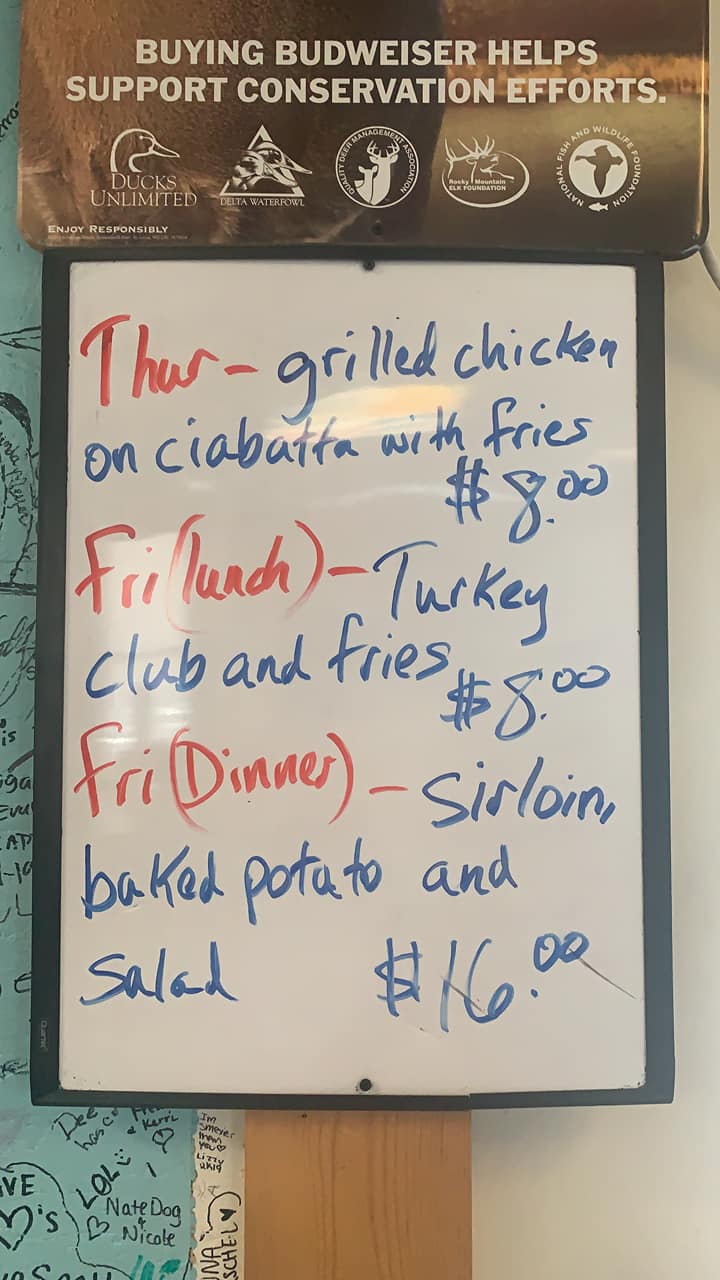 BUYING BUDWEISER HELPS
SUPPORT CONSERVATION EFFORTS.
DUCKS
UNLIMITED
DELTA WATERFOWL
QUALITY DEER MANAGEMENT ASSOCIATION
Rocky Mountain
ELK FOUNDATION
NATIONAL FISH AND WILDLIFE FOUNDATION
ENJOY RESPONSIBLY
Thur - grilled chicken
on ciabatta with fries
$8.00
Fri (lunch) - Turkey
club and fries
$8.00
Fri (Dinner) - Sirloin,
baked potato and
Salad $16.00
Quartet
Im
smexier
than
you
Lizzy
LOL
NateDog
&
Nicole